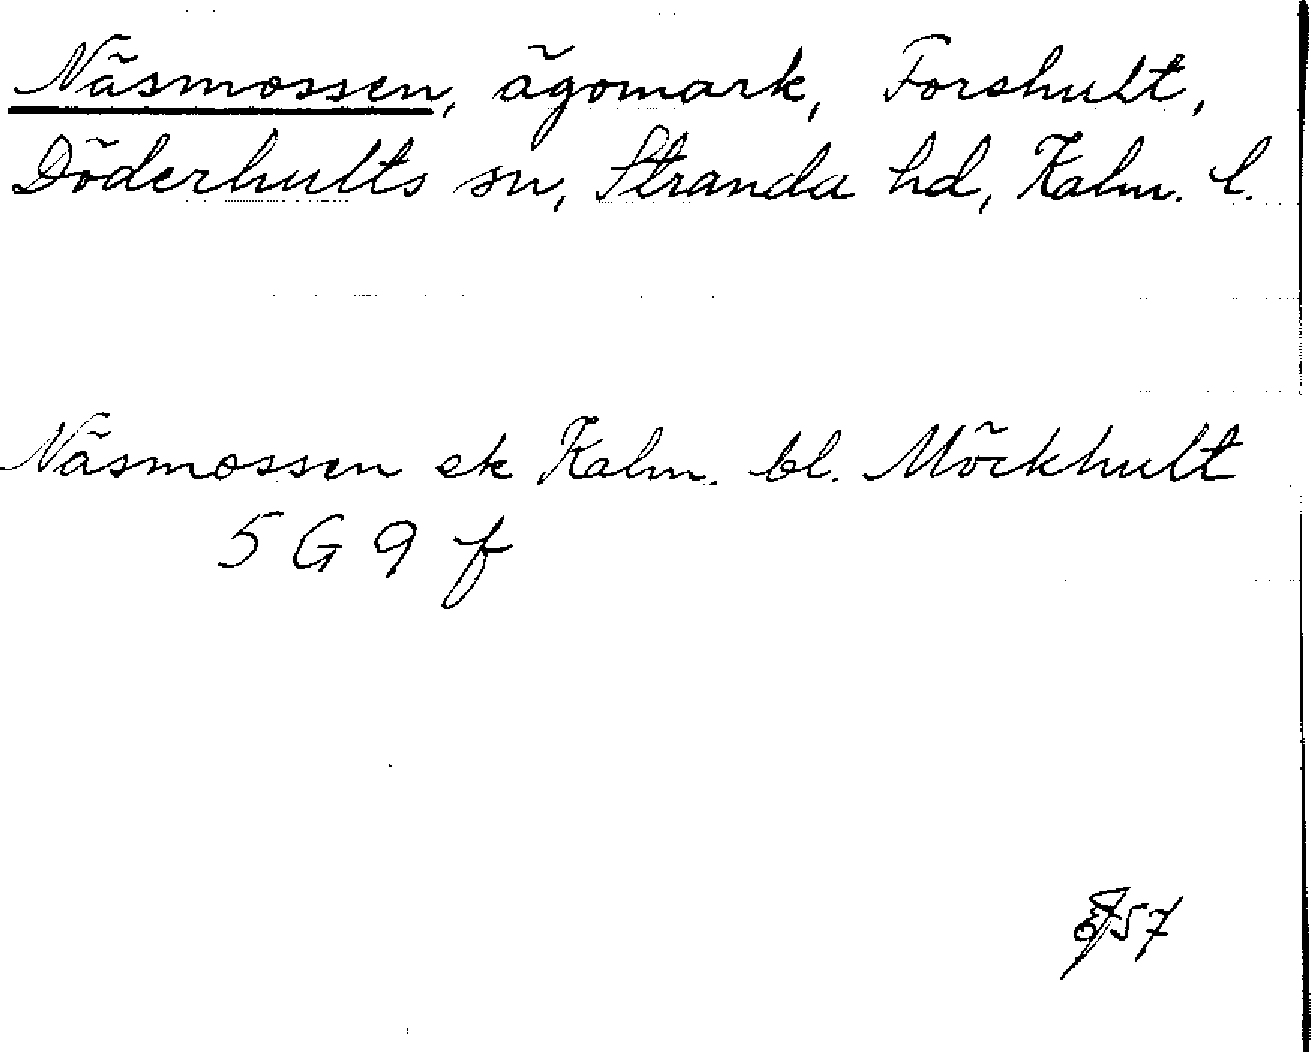 Näsmossen, ägomark, Forshult,
Döderhults sn, Stranda hd, Kalm. l.
Näsmossen ek Kalm. bl. Möckhult
5 G 9 f
57